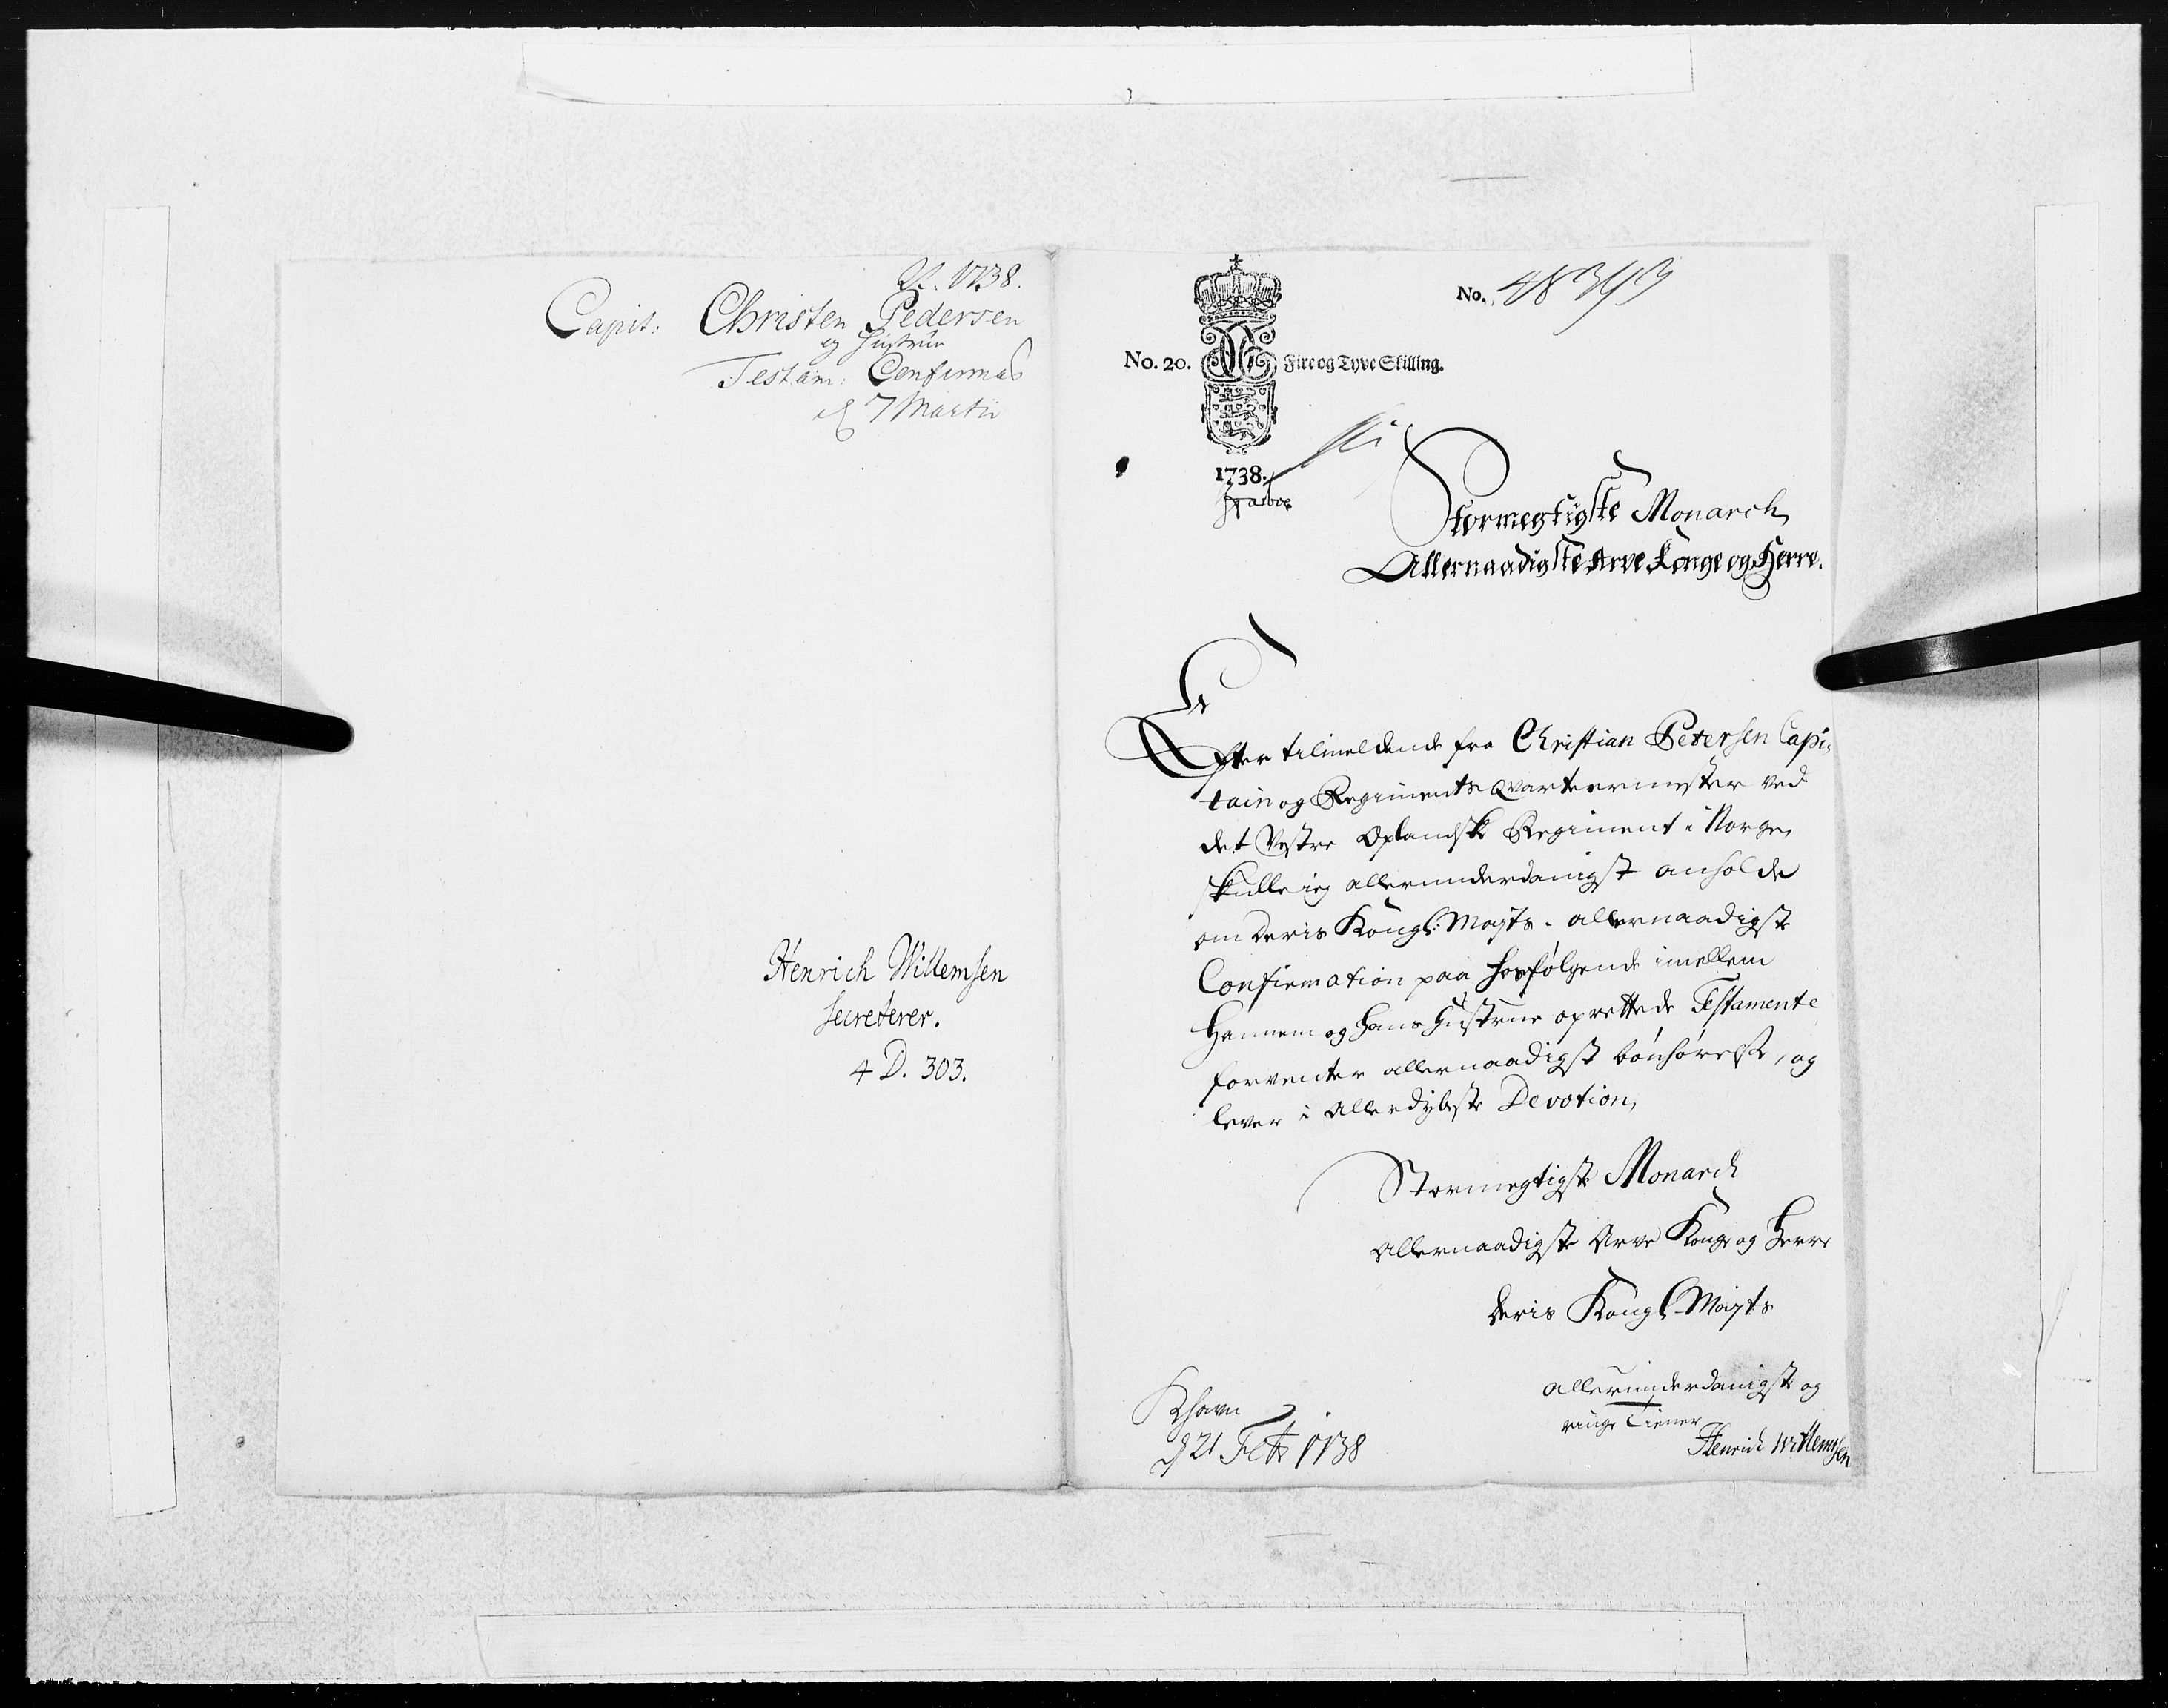 1738.
Capit: Christen Pedersen
og Hustrue
Testam: Confirmas
d 7 Martii
Henrich Willemsen
Secreterer.
4 D. 303.
No. 48393
No. 20. Fire og Tyve Skilling.
1738.
Stormegtigste Monarch
Allernaadigste Arve Konge og Herre.
Efter tilmeldende fra Christian Petersen Capi-
tain og Regiments Qvarteermester ved
det Vestre Oplandske Regiment i Norge,
skulle ieg allerunderdanigst anholde
om Deris Kongl: Mayts. allernaadigste
Confirmation paa hosfølgende imellem
Hannem og Hans Hustrue oprettede Testamente
forventer allernaadigst bønhørelse, og
lever i allerdybeste Devotion,
Stormegtigste Monarch
allernaadigste Arve Konge og Herre
Deris Kongl. Mayts
allerunderdanigste og
ringe Tiener
Henrich Willemsen
Khavn
d 21 Febr 1738